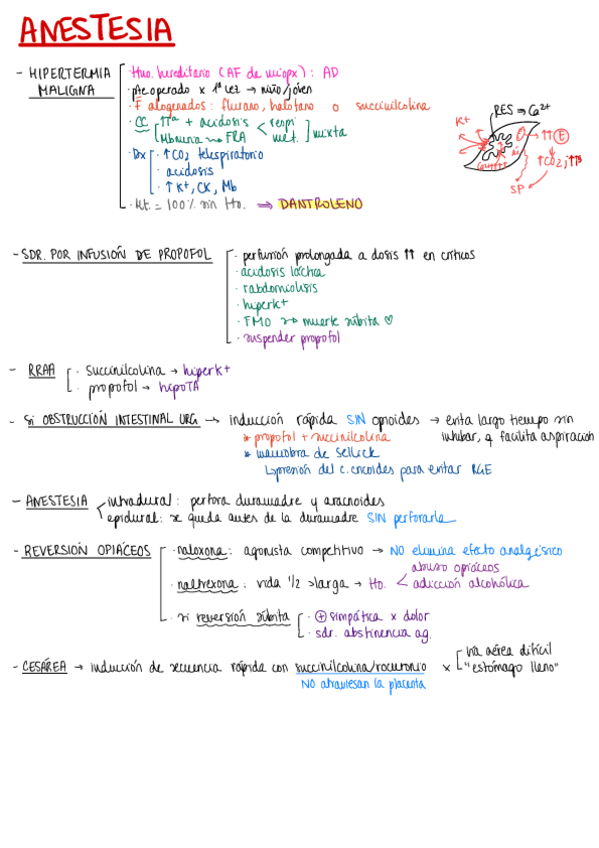 ANESTESIA
- HIPERTERMIA MALIGNA
· Hno. hereditario (AF de miopx): AD
· Preoperado x 1ª vez → niño/joven
· F alogenados: flurano, halotano o succinilcolina
· CC ↑Tª + acidosis < respi met. ] mixta
Mbinuria → FRA
· Dx · ↑CO2 telespiratorio
· acidosis
· ↑K+, CK, Mb
· Ht. = 100% sin Ho. ⇒ DANTROLENO
RES ⇒ Ca2+
K+
↑↑ E
↑CO2, ↑Tª
SP
- SDR. POR INFUSIÓN DE PROPOFOL
· perfusión prolongada a dosis ↑↑ en críticos
· acidosis láctica
· rabdomiolisis
· hiperK+
· FMO → muerte súbita ♡
· suspender propofol
- RRAA
· succinilcolina → hiperK+
· propofol → hipoTA
- Si OBSTRUCCIÓN INTESTINAL URG → inducción rápida SIN opioides → evita largo tiempo sin
* propofol + succinilcolina intubar, q facilita aspiración
* maniobra de Sellick
↳presión del c. cricoides para evitar RGE
- ANESTESIA
intradural: perfora duramadre y aracnoides
epidural: se queda antes de la duramadre SIN perforarla
- REVERSIÓN OPIÁCEOS
· naloxona: agonista competitivo → NO elimina efecto analgésico
abuso opiáceos
· naltrexona: vida 1/2 >larga → Ho. < adicción alcohólica
· si reversión súbita · ⊕ simpática x dolor
· sdr. abstinencia ag.
- CESÁREA → inducción de secuencia rápida con succinilcolina/rocuronio x vía aérea difícil
"estómago lleno"
NO atraviesan la placenta